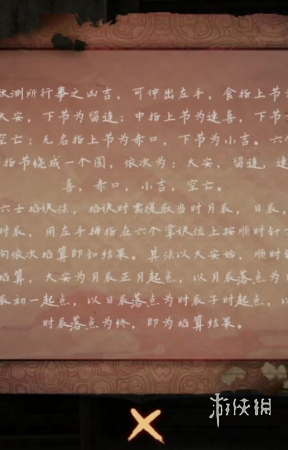 测所行事之凶吉,可伸出左手,食指上节
大安,下节为留连;中指上节为速喜,下节
空亡;无名指上节为赤口,下节为小吉。六
指节绕成一个圆,依次为:大安,留连,速
喜,赤口,小吉,空亡。
六壬掐诀法,掐诀时需提取当时月辰,日辰,
时辰,用左手拇指在六个掌诀位上按顺时针
向依次掐算即知结果。其法以大安始,顺时
掐算,大安为月辰正月起点,以月辰落点为
辰初一起点,以日辰落点为时辰子时起点,以
时辰落点为终,即为掐算结果。
游侠网